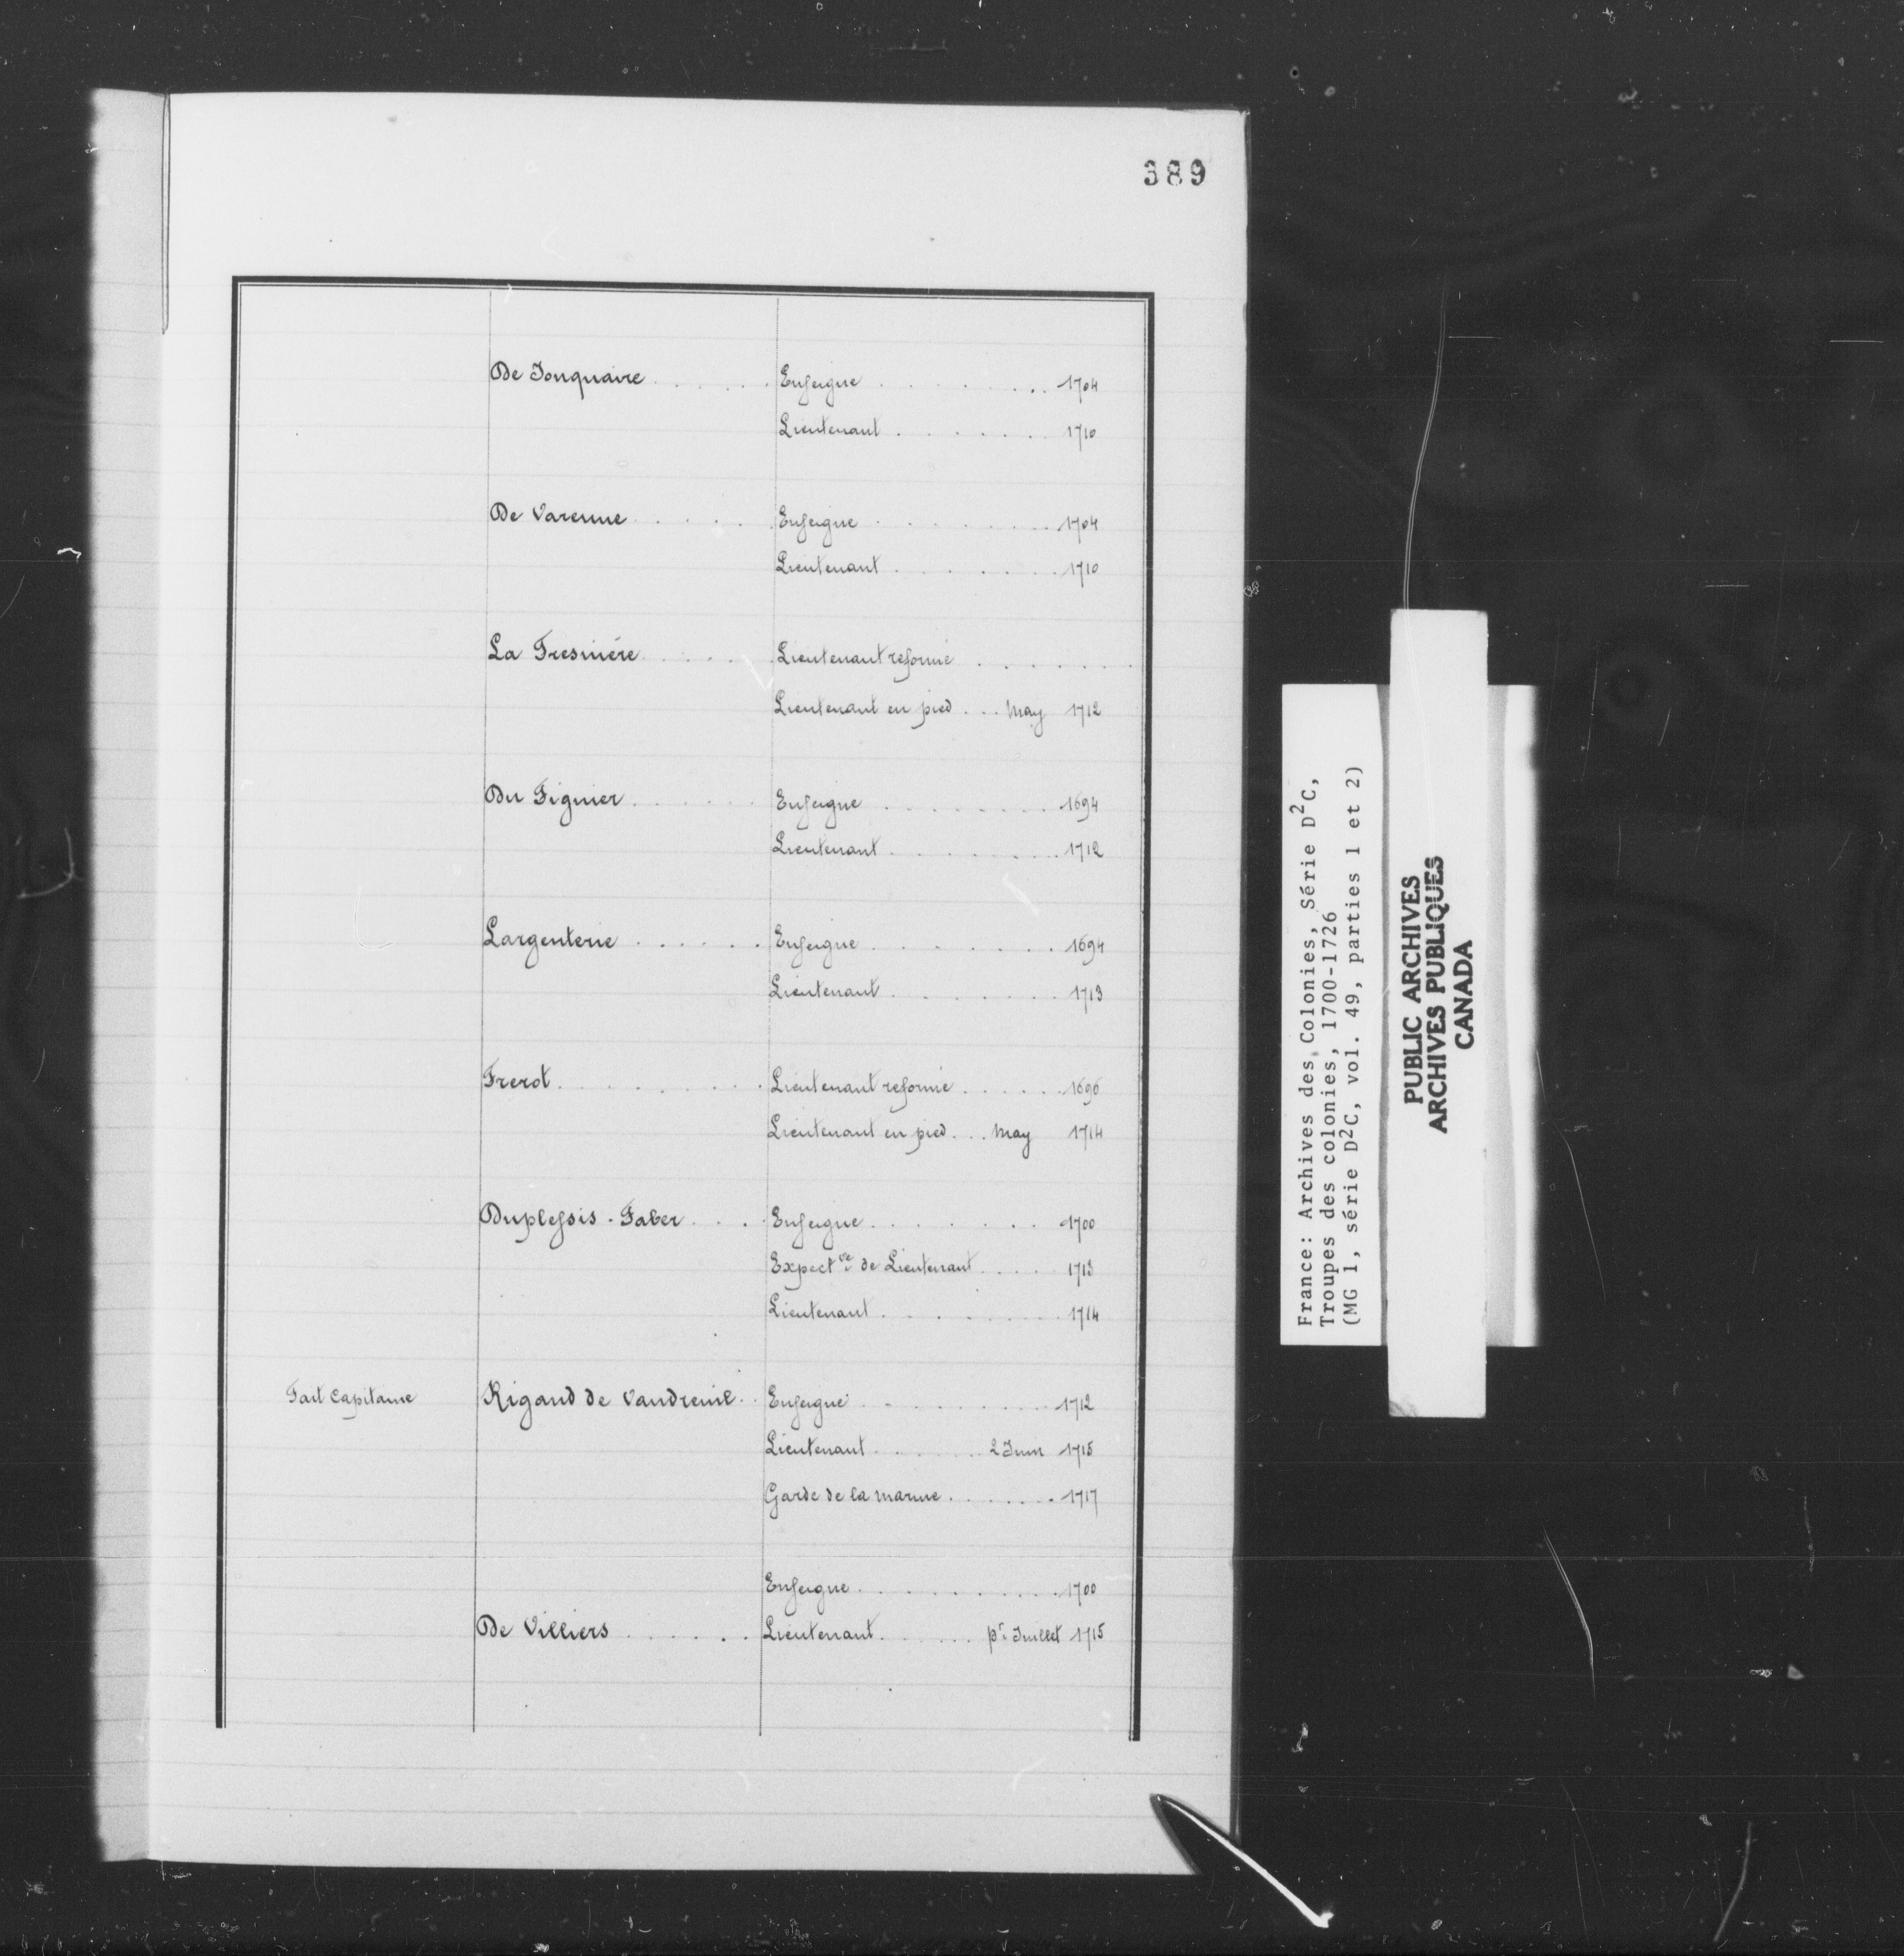 389
De Jonquaire . . . . . . Enseigne . . . . . . . . 1704
Lieutenant . . . . . . . 1710
De Varenne . . . . . Enseigne . . . . . . . . 1704
Lieutenant . . . . . . . 1710
La Fresnière . . . . . Lieutenant reformé . . . . . . .
Lieutenant en pied . . . May 1712
Du Figuier . . . . . . Enseigne . . . . . . . . 1694
Lieutenant . . . . . . . . 1712
Largenterie . . . . . . Enseigne . . . . . . . . 1694
Lieutenant . . . . . . . . 1713
Frerot . . . . . . . Lieutenant reformé . . . . . . 1696
Lieutenant en pied . . . May 1714
Duplessis . Faber . . . . Enseigne . . . . . . . 1700
Expect.ve de Lieutenant . . . . 1713
Lieutenant . . . . . . . . 1714
Fait Capitaine Rigaud de Vaudreuil . . Enseigne . . . . . . . . . 1712
Lieutenant . . . . . . 2 Juin 1715
Garde de la marine . . . . . . . 1717
Enseigne . . . . . . . . . . 1700
De Villiers . . . . . . Lieutenant . . . . . . pr Juillet 1715
France: Archives des Colonies, Série D²C,
Troupes des colonies, 1700-1726
(MG 1, série D²C, vol. 49, parties 1 et 2)
PUBLIC ARCHIVES
ARCHIVES PUBLIQUES
CANADA